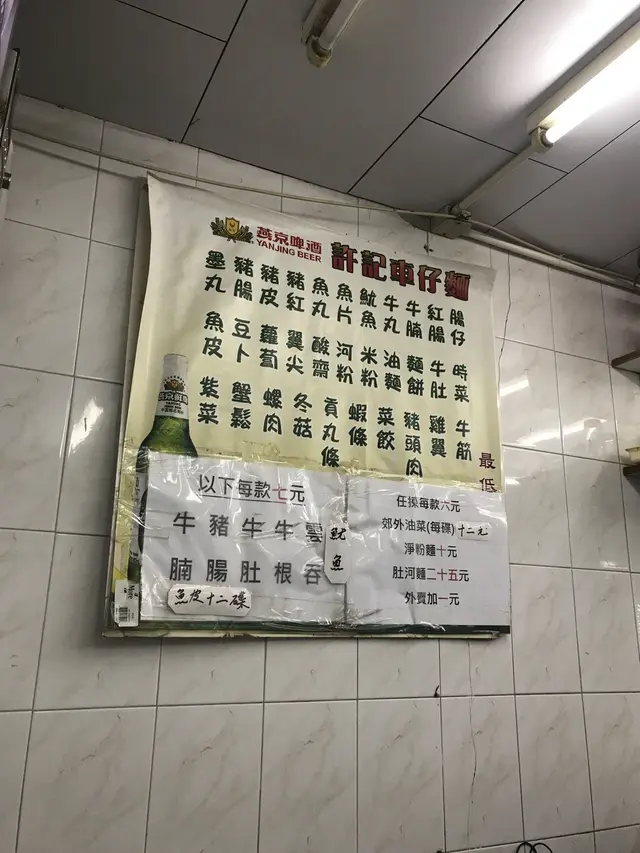 燕京啤酒
YANJING BEER
許記車仔麵
腸仔
紅腸
牛腩
牛丸
魷魚
魚片
魚丸
豬紅
豬皮
豬腸
墨丸
時菜
牛肚
麵餅
油麵
米粉
河粉
酸齋
翼尖
蘿蔔
豆卜
魚皮
牛筋
雞翼
豬頭肉
菜餃
蝦條
貢丸條
冬菇
螺肉
蟹鬆
紫菜
最低
任揀每款六元
郊外油菜(每碟)十二元
淨粉麵十元
肚河麵二十五元
外賣加一元
以下每款七元
牛腩
豬腸
牛肚
牛根
雲吞
魷魚
魚皮十二碟